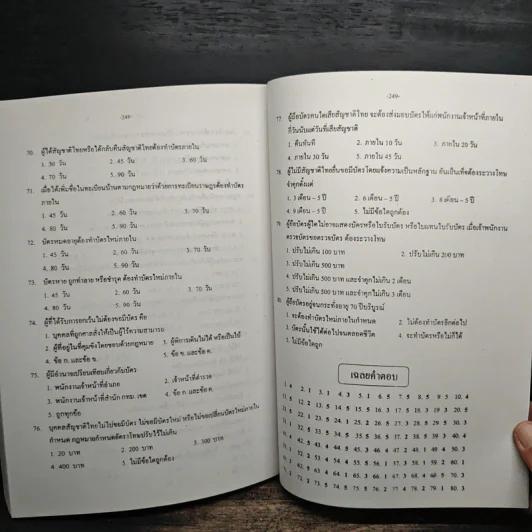 -249-
70. ผู้ได้สัญชาติไทยหรือได้กลับคืนสัญชาติไทยต้องทำบัตรภายใน
1. 30 วัน 2. 45 วัน 3. 60 วัน
4. 70 วัน 5. 90 วัน
71. เมื่อได้เพิ่มชื่อในทะเบียนบ้านตามกฎหมายว่าด้วยการทะเบียนราษฎรต้องทำบัตร
ภายใน
1. 45 วัน 2. 60 วัน 3. 70 วัน
4. 80 วัน 5. 90 วัน
72. บัตรหมดอายุต้องทำบัตรใหม่ภายใน
1. 45 วัน 2. 60 วัน 3. 70 วัน
4. 80 วัน 5. 90 วัน
73. บัตรหาย ถูกทำลาย หรือชำรุด ต้องทำบัตรใหม่ภายใน
1. 45 วัน 2. 60 วัน 3. 70 วัน
4. 80 วัน 5. 90 วัน
74. ผู้ที่ได้รับการยกเว้นไม่ต้องขอมีบัตร คือ
1. บุคคลที่ถูกศาลสั่งให้เป็นผู้ไร้ความสามารถ
2. ผู้ที่อยู่ในที่คุมขังโดยชอบด้วยกฎหมาย 3. ผู้พิการเดินไม่ได้ หรือเป็นใบ้
4. ข้อ ก. และข้อ ข. 5. ข้อ ข. และข้อ ค.
75. ผู้มีอำนาจเปรียบเทียบเกี่ยวกับบัตร
1. พนักงานเจ้าหน้าที่อำเภอ 2. เจ้าหน้าที่ตำรวจ
3. พนักงานเจ้าหน้าที่สำนัก กทม. เขต 4. ข้อ ก และข้อ ค.
5. ถูกทุกข้อ
76. บุคคลสัญชาติไทยไม่ไปขอมีบัตร ไม่ขอมีบัตรใหม่ หรือไม่ขอเปลี่ยนบัตรใหม่ภายใน
กำหนด กฎหมายกำหนดอัตราโทษปรับไว้ไม่เกิน
1. 20 บาท 2. 200 บาท 3. 300 บาท
4. 400 บาท 5. ไม่มีข้อใดถูกต้อง
-249-
77. ผู้ถือบัตรคนใดเสียสัญชาติไทย จะต้องส่งมอบบัตรให้แก่พนักงานเจ้าหน้าที่ภายใน
กี่วันนับแต่วันที่เสียสัญชาติ
1. คืนทันที 2. ภายใน 10 วัน 3. ภายใน 20 วัน
4. ภายใน 30 วัน 5. ภายใน 45 วัน
78. ผู้ไม่มีสัญชาติไทยยื่นขอมีบัตรโดยแจ้งความเป็นหลักฐาน อันเป็นเท็จต้องระวางโทษ
จำคุกตั้งแต่
1. 3 เดือน – 5 ปี 2. 6 เดือน – 5 ปี 3. 8 เดือน – 5 ปี
4. 9 เดือน – 5 ปี 5. ไม่มีข้อใดถูกต้อง
79. ผู้ถือบัตรผู้ใดไม่อาจแสดงบัตรหรือใบรับบัตร หรือใบแทนใบรับบัตร เมื่อเจ้าพนักงาน
ตรวจบัตรขอตรวจบัตร ต้องระวางโทษ
1. ปรับไม่เกิน 100 บาท 2. ปรับไม่เกิน 200 บาท
3. ปรับไม่เกิน 500 บาท
4. ปรับไม่เกิน 500 บาท และจำคุกไม่เกิน 2 เดือน
5. ปรับไม่เกิน 500 บาท และจำคุกไม่เกิน 3 เดือน
ผู้ถือบัตรอยู่จนกระทั่งอายุ 70 ปีบริบูรณ์
1. จะต้องทำบัตรใหม่ภายในกำหนด 2. ไม่ต้องทำบัตรอีกต่อไป
บัตรนั้นใช้ได้ต่อไปจนตลอดชีวิต 4. จะทำบัตรหรือไม่ก็ได้
ไม่มีข้อใดถูก
เฉลยคำตอบ
1. 4 2. 1 3. 1 4. 3 5. 1 6. 5 7. 5 8. 5 9. 5 10. 4